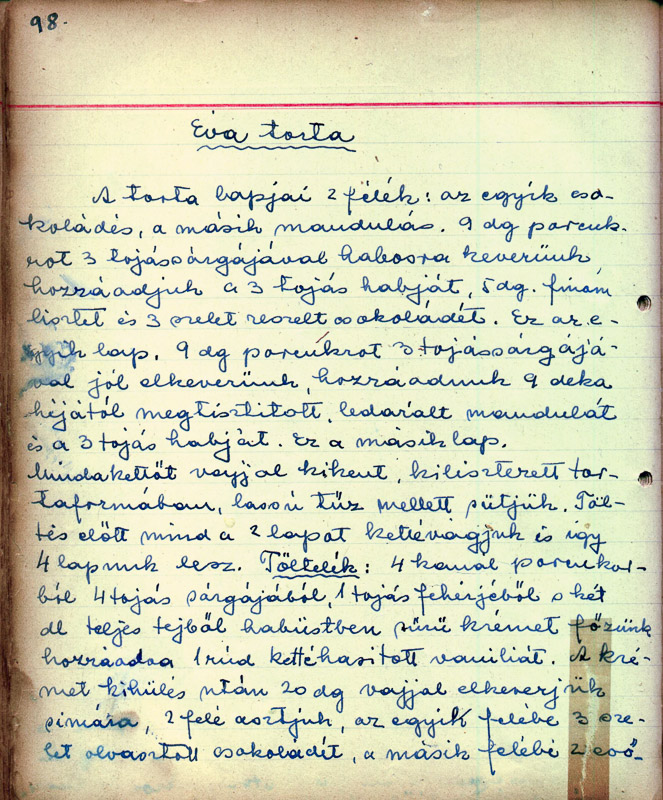 98.
Éva torta
A torta lapjai 2 félék: az egyik cso-
koládés, a másik mandulás. 9 dg porcuk-
rot 3 tojássárgájával habosra keverünk
hozzáadjuk a 3 tojás habját, 5 dg. finom
lisztet és 3 szelet reszelt csokoládét. Ez az e-
gyik lap. 9 dg porcukrot 3 tojássárgájá-
val jól elkeverünk, hozzáadunk 9 deka
héjától megtisztitott, ledarált mandulát
és a 3 tojás habját. Ez a másik lap.
Mindakettőt vajjal kikent, kilisztezett tor-
taformában, lassú tűz mellett sütjük. Töl-
tés előtt mind a 2 lapot kettévágjuk és igy
4 lapunk lesz. Töltelék: 4 kanál porcukor-
ból 4 tojás sárgájából, 1 tojás fehérjéből s két
dl teljes tejből habüstben sürü krémet főzünk
hozzáadva 1 rúd kettéhasitott vaniliát. A kré-
met kihülés után 20 dg vajjal elkeverjük
simára, 2 felé osztjuk, az egyik felébe 3 sze-
let olvasztott csokoládét, a másik felébe 2 evő-